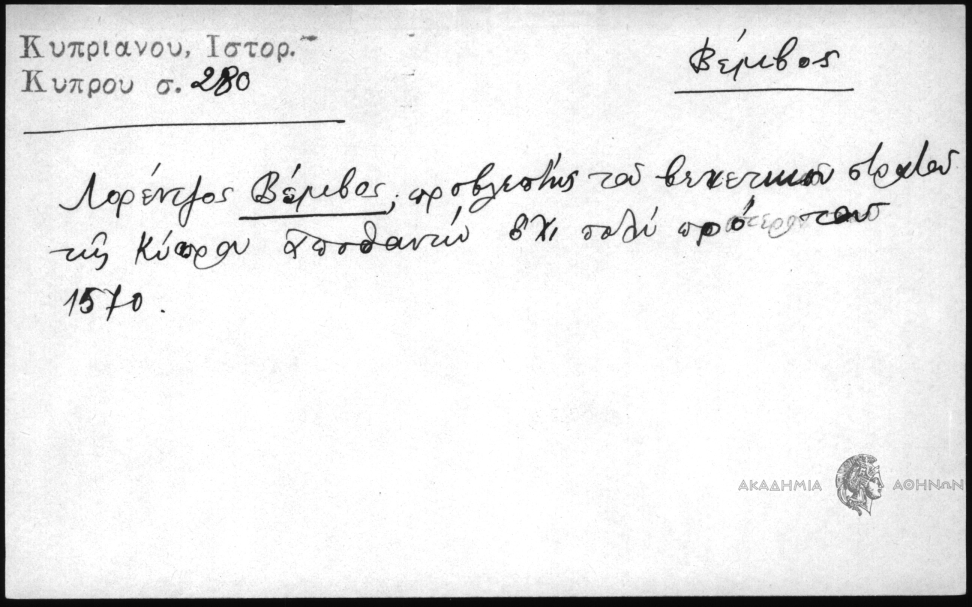 Κυπριανου, Ιστορ.
Κυπρου σ. 280
Βέμβος
Λορέντζος Βέμβος, προβλεπτής του βενετικού στρατού
της Κύπρου αποθανών όχι πολύ πρότερον του
1570.
ΑΚΑΔΗΜΙΑ ΑΘΗΝΩΝ